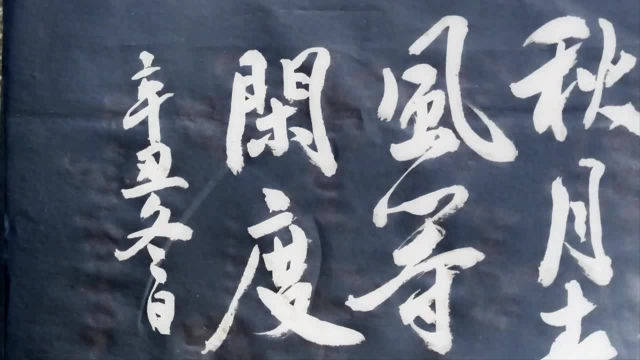 秋月
風等
閑度
辛丑冬日